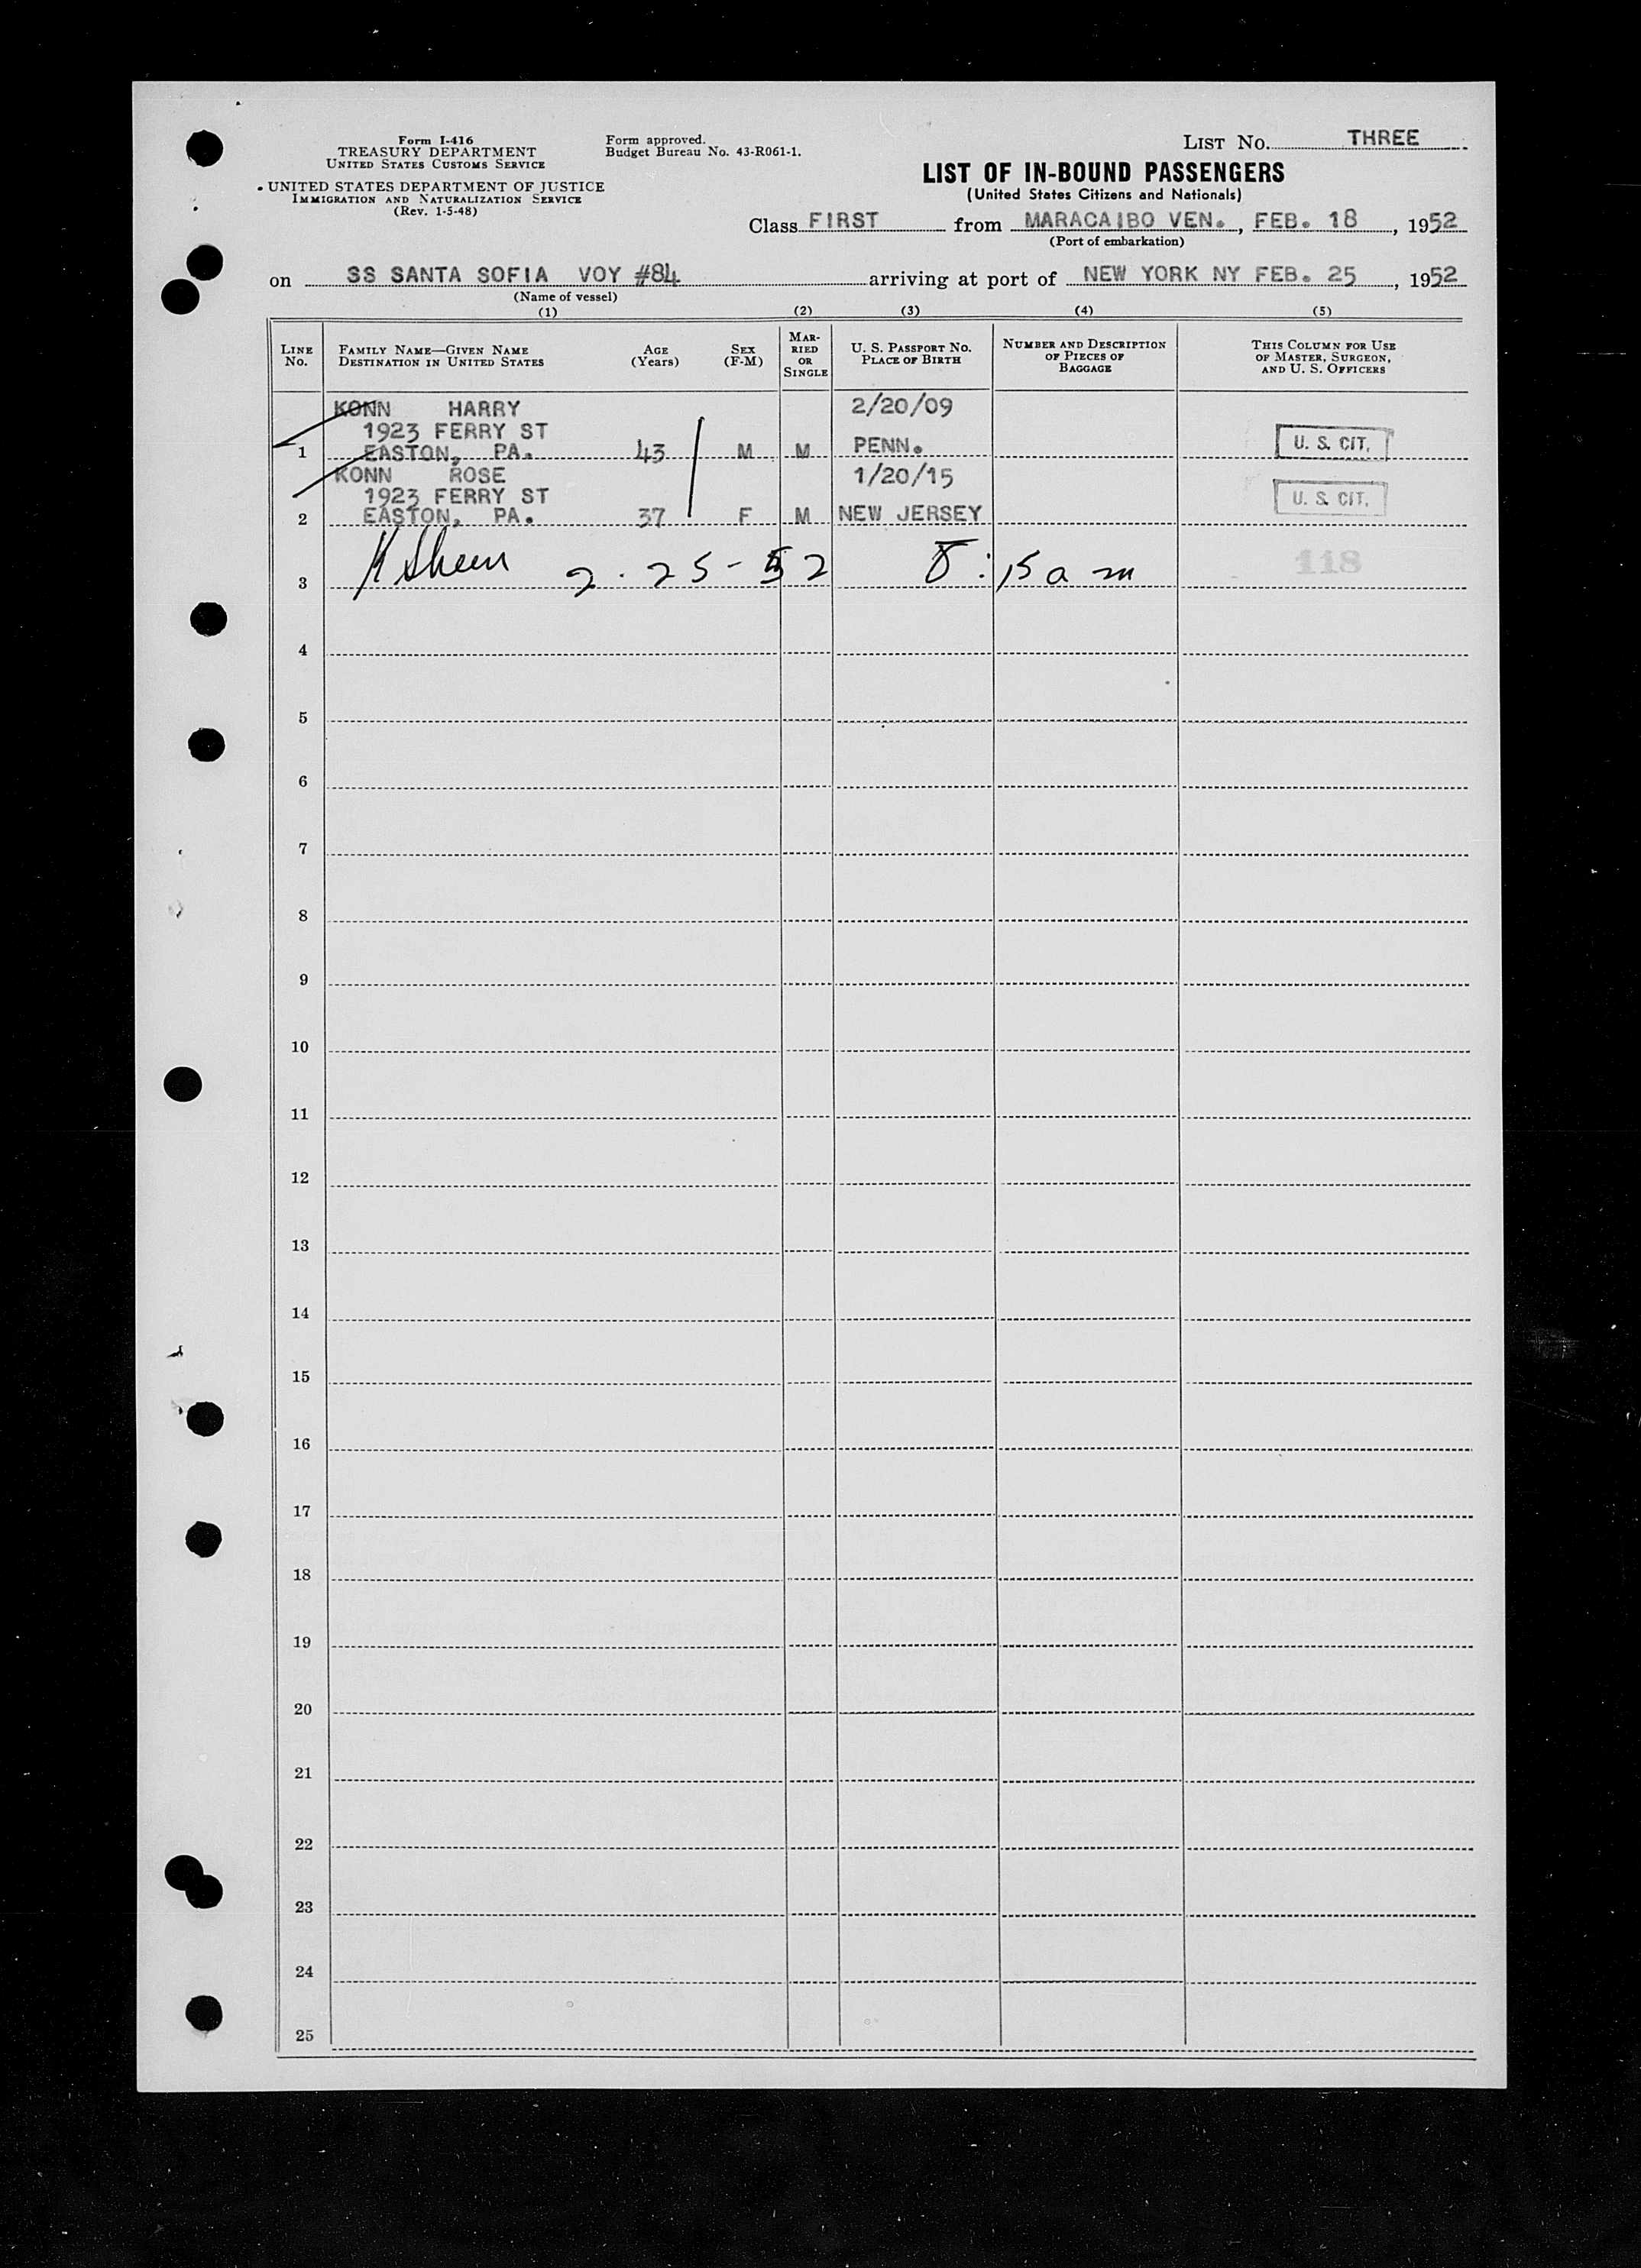 Form I-416
TREASURY DEPARTMENT
UNITED STATES CUSTOMS SERVICE
UNITED STATES DEPARTMENT OF JUSTICE
IMMIGRATION AND NATURALIZATION SERVICE
(Rev. 1-5-48)
Form approved.
Budget Bureau No. 43-R061-1.
LIST No. THREE
LIST OF IN-BOUND PASSENGERS
(United States Citizens and Nationals)
Class FIRST from MARACAIBO VEN., FEB. 18, 1952
(Port of embarkation)
on SS SANTA SOFIA VOY #84 arriving at port of NEW YORK NY FEB. 25, 1952
(Name of vessel)
(1) (2) (3) (4) (5)
LINE No. FAMILY NAME—GIVEN NAME DESTINATION IN UNITED STATES AGE (Years) SEX (F-M) MARRIED OR SINGLE U. S. PASSPORT No. PLACE OF BIRTH NUMBER AND DESCRIPTION OF PIECES OF BAGGAGE THIS COLUMN FOR USE OF MASTER, SURGEON, AND U. S. OFFICERS
KONN HARRY 2/20/09
1923 FERRY ST
1 EASTON, PA. 43 M M PENN. U. S. CIT.
KONN ROSE 1/20/15
1923 FERRY ST U. S. CIT.
2 EASTON, PA. 37 F M NEW JERSEY
3 2-25-52 8:15 am 118
4
5
6
7
8
9
10
11
12
13
14
15
16
17
18
19
20
21
22
23
24
25